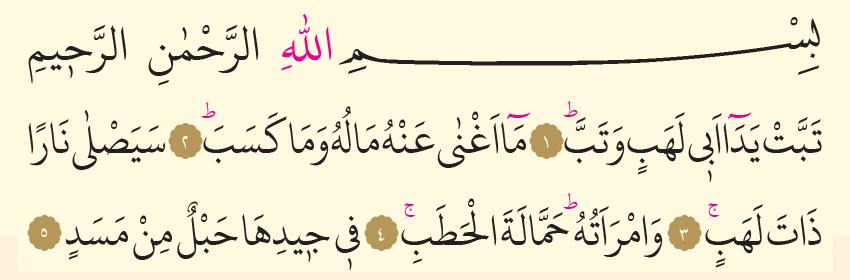 بِسْمِ اللّٰهِ الرَّحْمٰنِ الرَّح۪يمِ
تَبَّتْ يَدَٓا اَب۪ي لَهَبٍ وَتَبَّۜ ﴿١﴾ مَٓا اَغْنٰى عَنْهُ مَالُهُ وَمَا كَسَبَۜ ﴿٢﴾ سَيَصْلٰى نَارًا
ذَاتَ لَهَبٍۚ ﴿٣﴾ وَامْرَاَتُهُۜ حَمَّالَةَ الْحَطَبِۚ ﴿٤﴾ ف۪ي ج۪يدِهَا حَبْلٌ مِنْ مَسَدٍ ﴿٥﴾